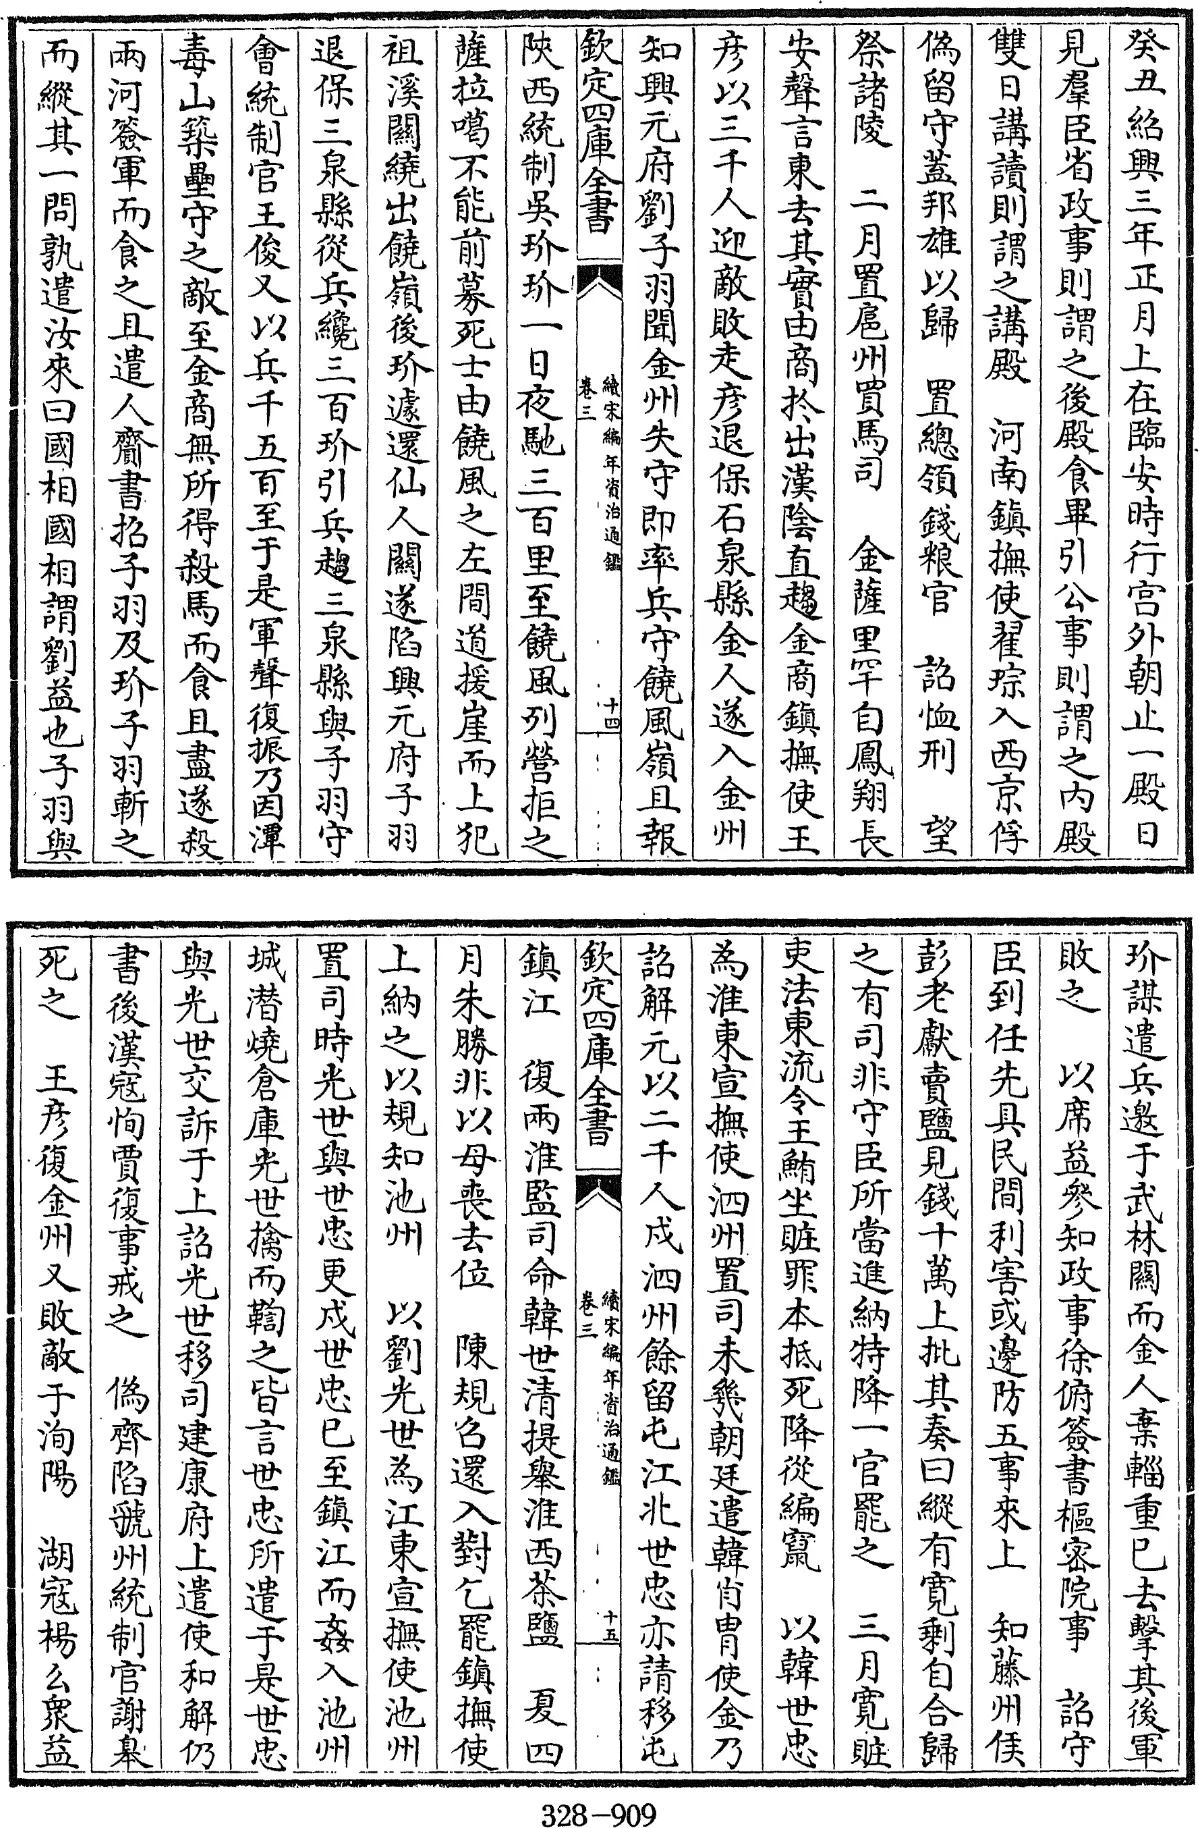 癸丑紹興三年正月上在臨安時行宫外朝止一殿日
見羣臣省政事則謂之後殿食畢引公事則謂之内殿
雙日講讀則謂之講殿　河南鎮撫使翟琮入西京俘
偽留守孟邦雄以歸　置總領錢粮官　詔恤刑　望
祭諸陵　二月置扈州買馬司　金薩里罕自鳳翔長
安聲言東去其實由商於出漢陰直趨金商鎮撫使王
彦以三千人迎敵敗走彦退保石泉縣金人遂入金州
知興元府劉子羽聞金州失守即率兵守饒風嶺且報
欽定四庫全書
續宋編年資治通鑑
卷三
十四
陜西統制吳玠玠一日夜馳三百里至饒風列營拒之
薩拉噶不能前募死士由饒風之左間道援崖而上犯
祖溪關繞出饒嶺後玠遽還仙人關遂陷興元府子羽
退保三泉縣從兵纔三百玠引兵趨三泉縣與子羽守
會統制官王俊又以兵千五百至于是軍聲復振乃因潭
毒山築壘守之敵至金商無所得殺馬而食且盡遂殺
兩河簽軍而食之且遣人齎書招子羽及玠子羽斬之
而縱其一問孰遣汝來曰國相國相謂劉益也子羽與
玠謀遣兵邀于武林關而金人棄輜重已去擊其後軍
敗之　以席益參知政事徐俯簽書樞密院事　詔守
臣到任先具民間利害或邊防五事來上　知藤州侯
彭老獻賣鹽見錢十萬上批其奏曰縱有寛剩自合歸
之有司非守臣所當進納特降一官罷之　三月寛贓
吏法東流令王鮪坐贓罪本抵死降從編竄　以韓世忠
為淮東宣撫使泗州置司未幾朝廷遣韓肖胄使金乃
詔解元以二千人戍泗州餘留屯江北世忠亦請移屯
欽定四庫全書
續宋編年資治通鑑
卷三
十五
鎮江　復兩淮監司命韓世清提舉淮西茶鹽　夏四
月朱勝非以母喪去位　陳規召還入對乞罷鎮撫使
上納之以規知池州　以劉光世為江東宣撫使池州
置司時光世與世忠更戍世忠已至鎮江而姦入池州
城潜燒倉庫光世擒而鞫之皆言世忠所遣于是世忠
與光世交訴于上詔光世移司建康府上遣使和解仍
書後漢寇恂賈復事戒之　偽齊陷虢州統制官謝皋
死之　王彦復金州又敗敵于洵陽　湖寇楊么衆益
328-909